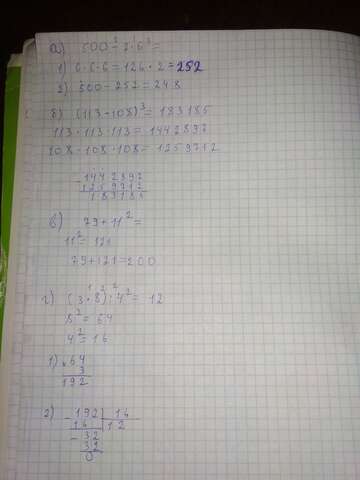 а) 500 - 2·6³ =
1) 6·6·6 = 126·2 = 252
2) 500 - 252 = 248
б) (113 - 108)³ = 183185
113·113·113 = 1442897
108·108·108 = 1259712
- 1442897
1259712
183185
в) 79 + 11² =
11² = 121
79 + 121 = 200
г) (3·8²) : 4² = 12
8² = 64
4² = 16
1) × 64
3
192
2) - 192 | 16
16 | 12
- 32
32
0